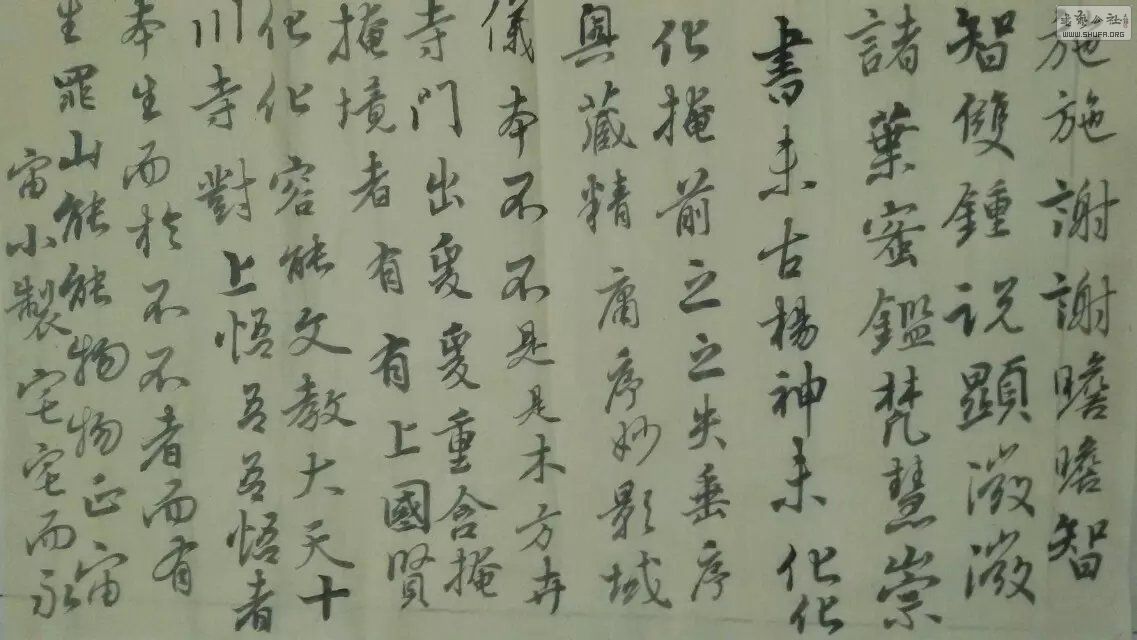 施施謝謝瞻瞻智
智雙鍾说顯激激
諸葉蜜鑑梵慧崇
書未古楊神未化化
化掩前之之失垂序
奥藏精庸序妙影域
儀本不不是是木方弁
寺門出爰爰重含掩
掩境者有有上國賢
化化容能文教大天十
川寺對上悟吾吾悟者
本生而於不不者而有
生罪山能能物物正宙
宙小製宅宅而永
書法公社
WWW.SHUFA.ORG